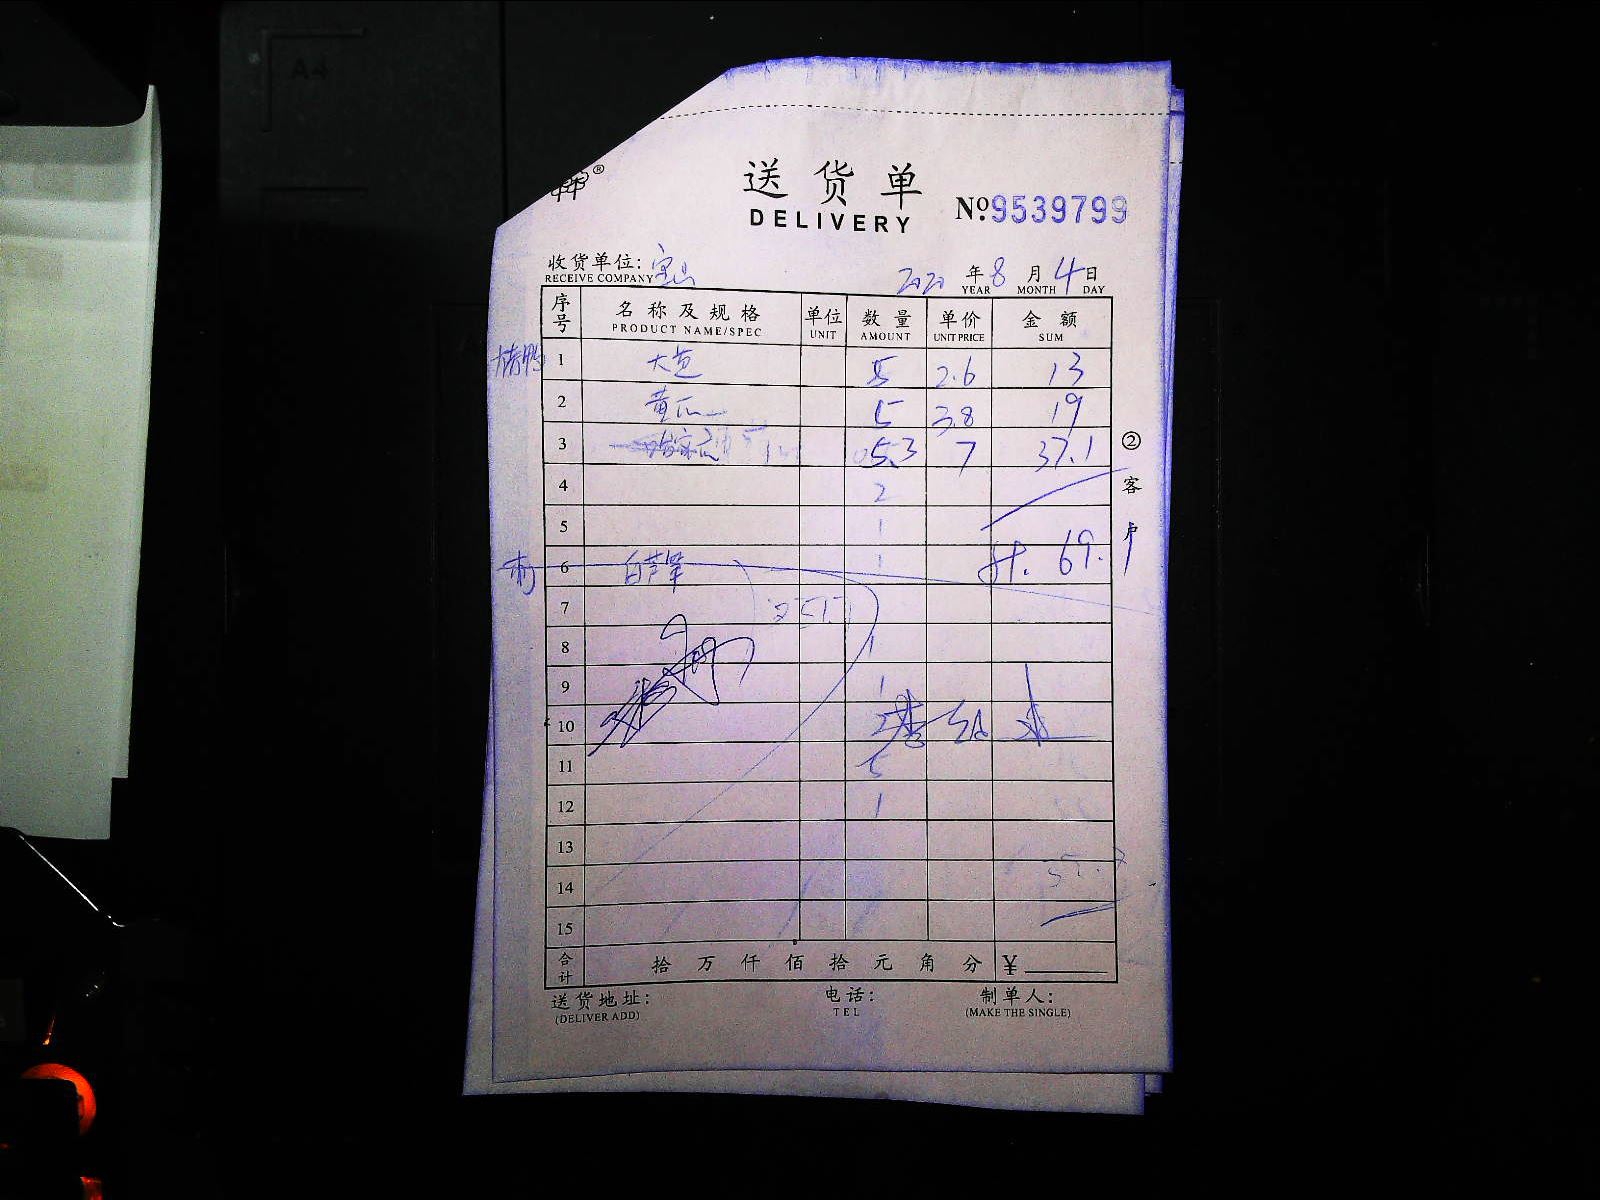 A4
®
送货单
DELIVERY
Nº 9539799
收货单位: 宝山
RECEIVE COMPANY
2020 年 8 月 4 日
YEAR MONTH DAY
序号 名称及规格 单位 数量 单价 金额
PRODUCT NAME/SPEC UNIT AMOUNT UNIT PRICE SUM
1 大芝 5 2.6 13
2 黄瓜 5 3.8 19
3 5.3 7 37.1
4 2
5 1
6 白芦笋 1
计. 69.1
7
8 1
9 1
10 2
11 5
12 1
13
14
15
合计 拾 万 仟 佰 拾 元 角 分 ¥
② 客户
送货地址: 电话: 制单人:
(DELIVER ADD) TEL (MAKE THE SINGLE)